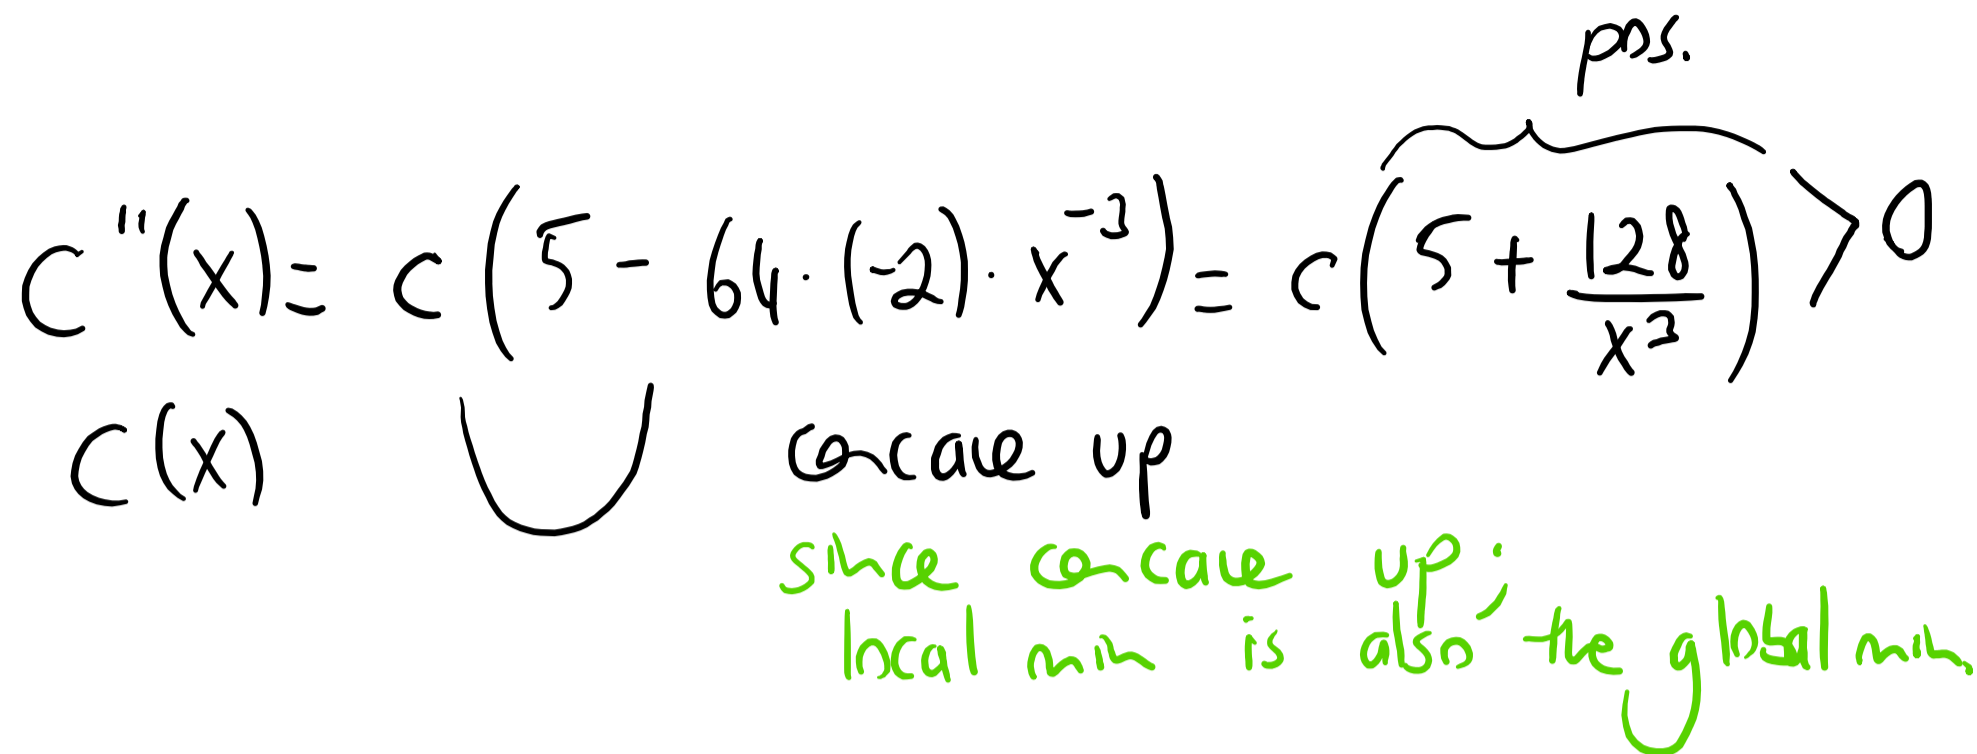 pos.
C''(x) = c(5 - 64·(-2)·x^-3) = c(5 + 128/x^3) > 0
C(x) concave up
since concave up;
local min is also the global min.